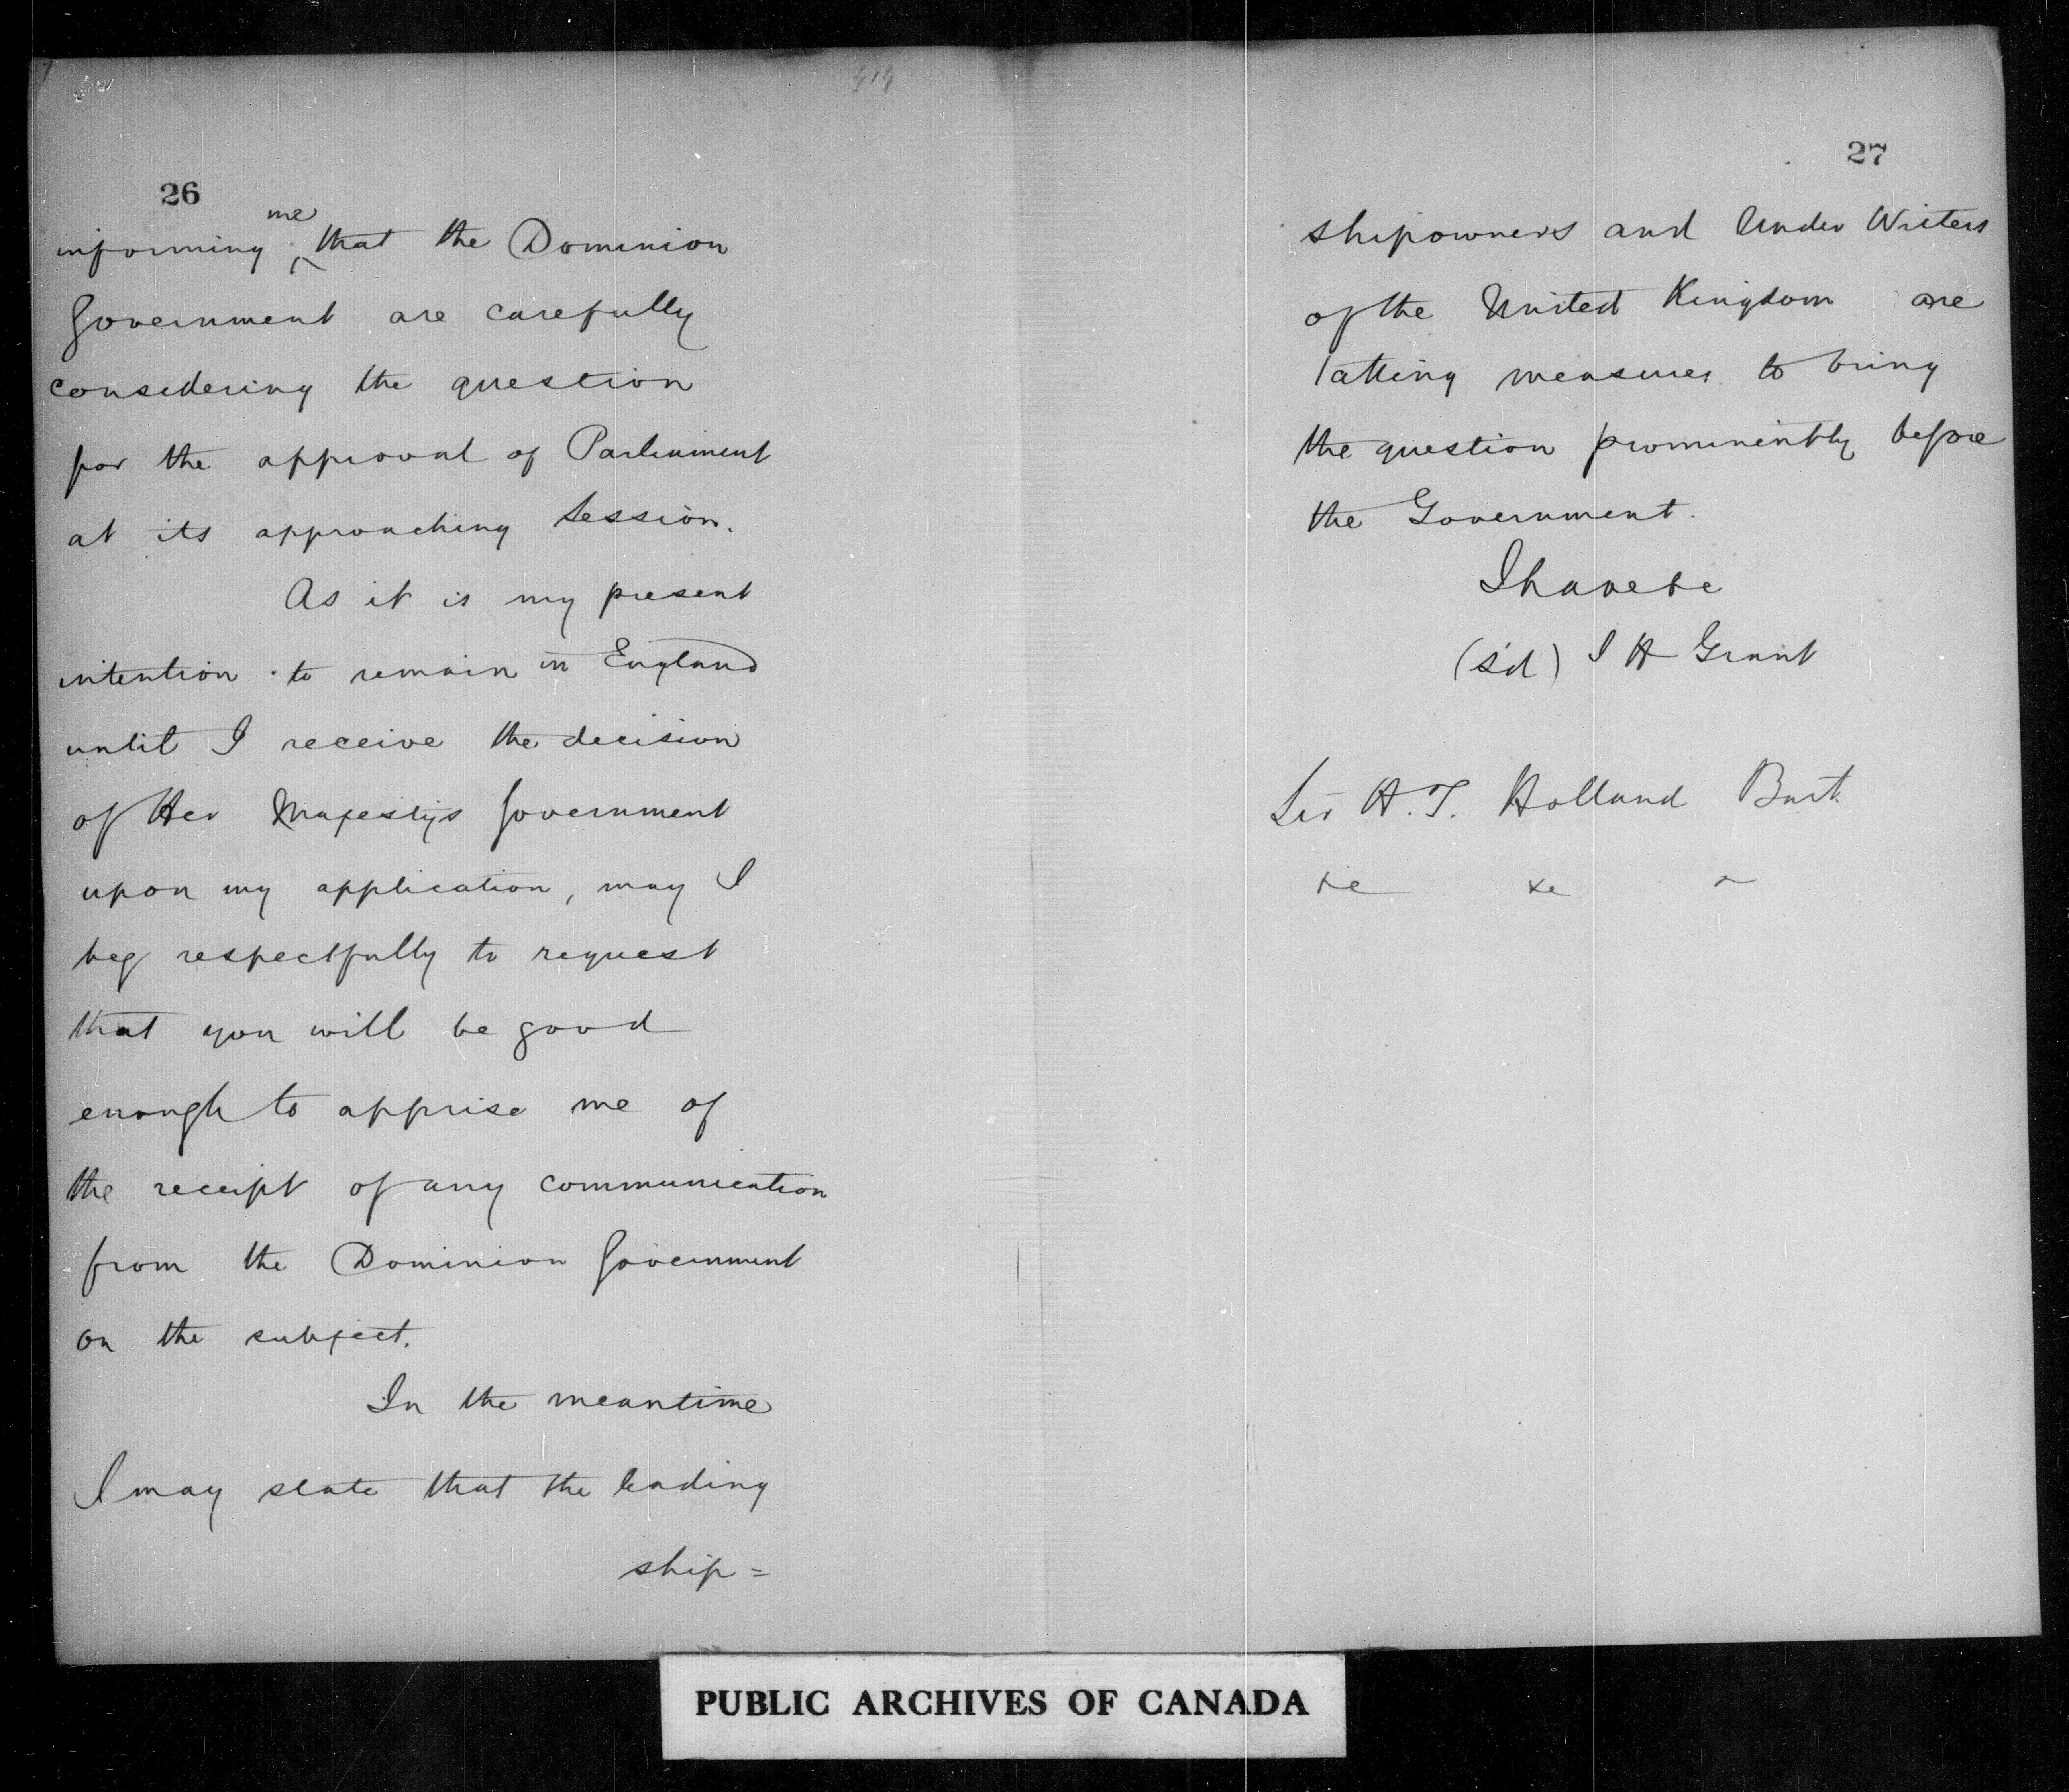 26
informing me that the Dominion
Government are carefully
considering the question
for the approval of Parliament
at its approaching Session.
As it is my present
intention to remain in England
until I receive the decision
of Her Majesty's Government
upon my application, may I
beg respectfully to request
that you will be good
enough to apprise me of
the receipt of any communication
from the Dominion Government
on the subject.
In the meantime
I may state that the leading
ship=
27
shipowners and Under Writers
of the United Kingdom are
taking measures to bring
the question prominently before
the Government.
I have &c
(s'd) I H Grant
Sir H. T. Holland Bart.
&c &c
PUBLIC ARCHIVES OF CANADA